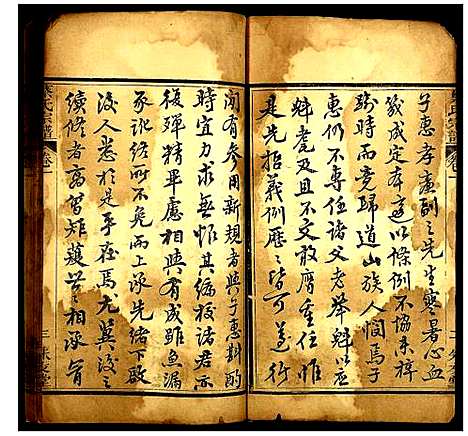 子惠孝廉副之先生寒暑心血
几成定本遠以條例不協未梓
踰時而竟歸道山族人憫焉子
惠仍不專任諸父老舉魁以应
魁耄及且不文敢膺重任惟
是先哲義例歷歷皆可遵行
间有参用新規者與子惠斟酌
時宜力求無憾其编校诸君亦
復殫精畢慮相與有成雖魚漏
豕訛終所不免而上承先緒下啟
後人悉於是乎在焉尤冀後之
續修者商習矩矱世世相承
氏宗譜
卷一
三